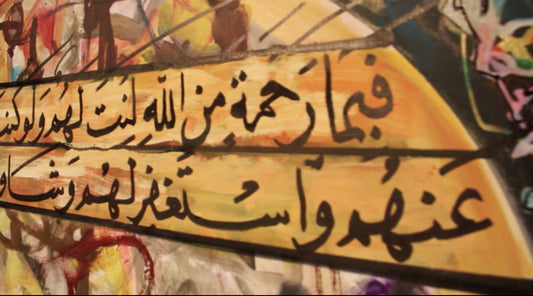 فَبِمَا رَحْمَةٍ مِنَ اللّٰهِ لِنْتَ لَهُمْ وَلَوْ
عَنْهُمْ وَاسْتَغْفِرْ لَهُمْ وَشَا